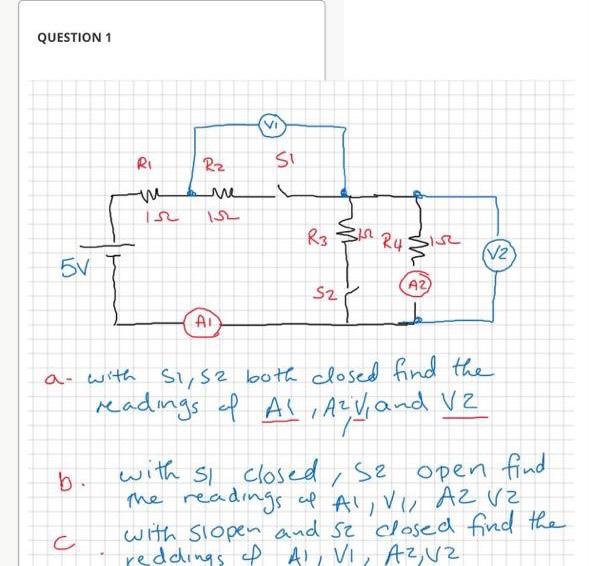 QUESTION 1
V1
R1 R2 S1
1Ω 1Ω
R3 1Ω R4 1Ω
V2
5V
S2
A2
A1
a- with S1, S2 both closed find the
readings of A1, A2, V1 and V2
b. with S1 closed, S2 open find
the readings of A1, V1, A2 V2
c. with S1open and S2 closed find the
reddings of A1, V1, A2, V2